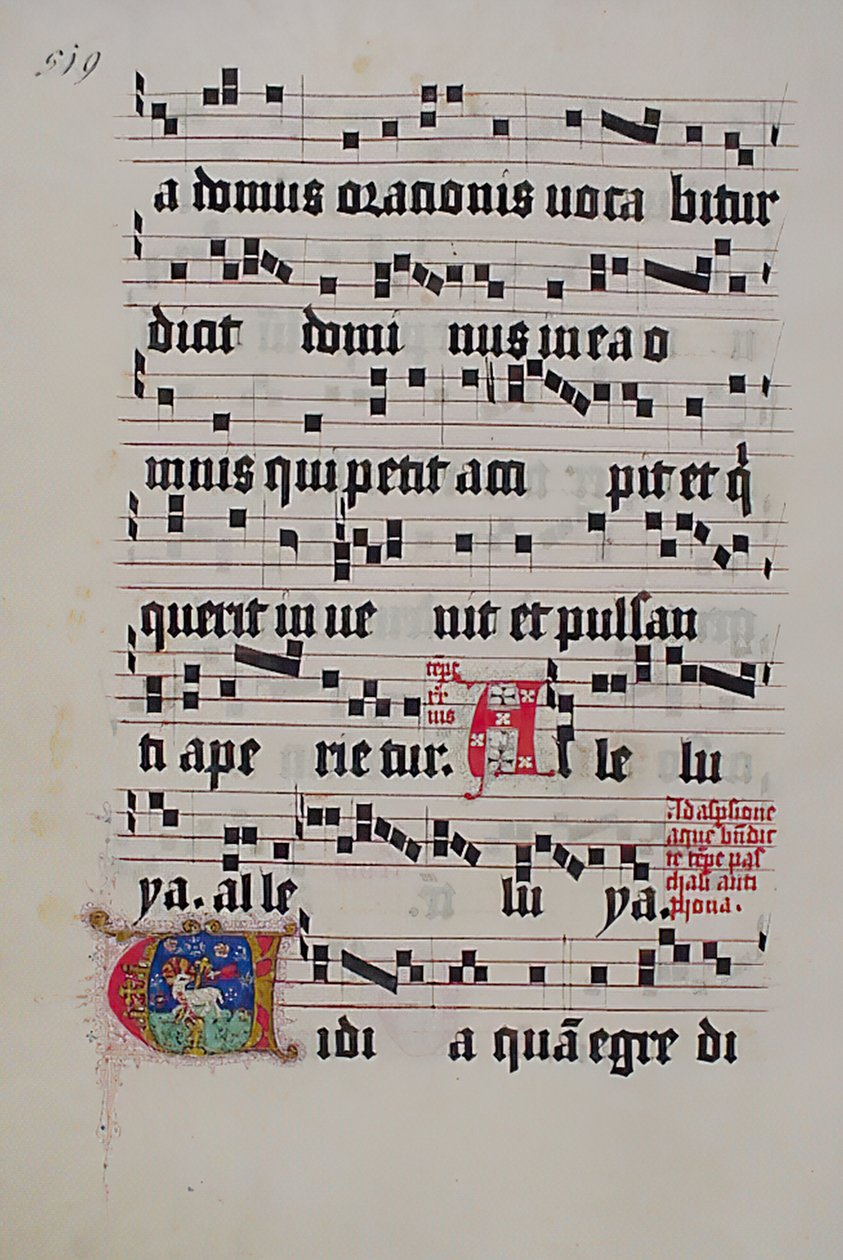 519
a domus orationis uoca bitur
dicit domi nus in ea o
mnis qui petit acci pit et q̇
querit in ue nit et pulsan
ti ape rie tur. Al le lu
tēpe
ẜius
ya. al le lu ya.
Ad aspsione
aque bn̄dic
te tēpe pas
chali anti
phona.
Uidi a quā egre di